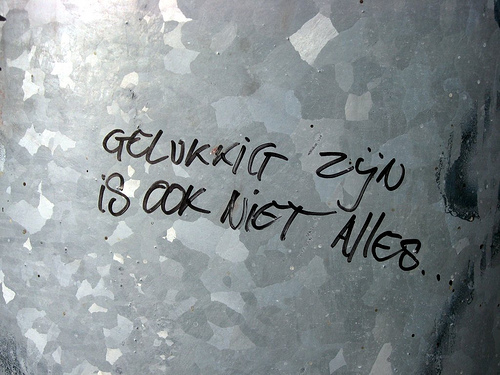 GELUKKiG ZijN
iS OOK NiET AllES...